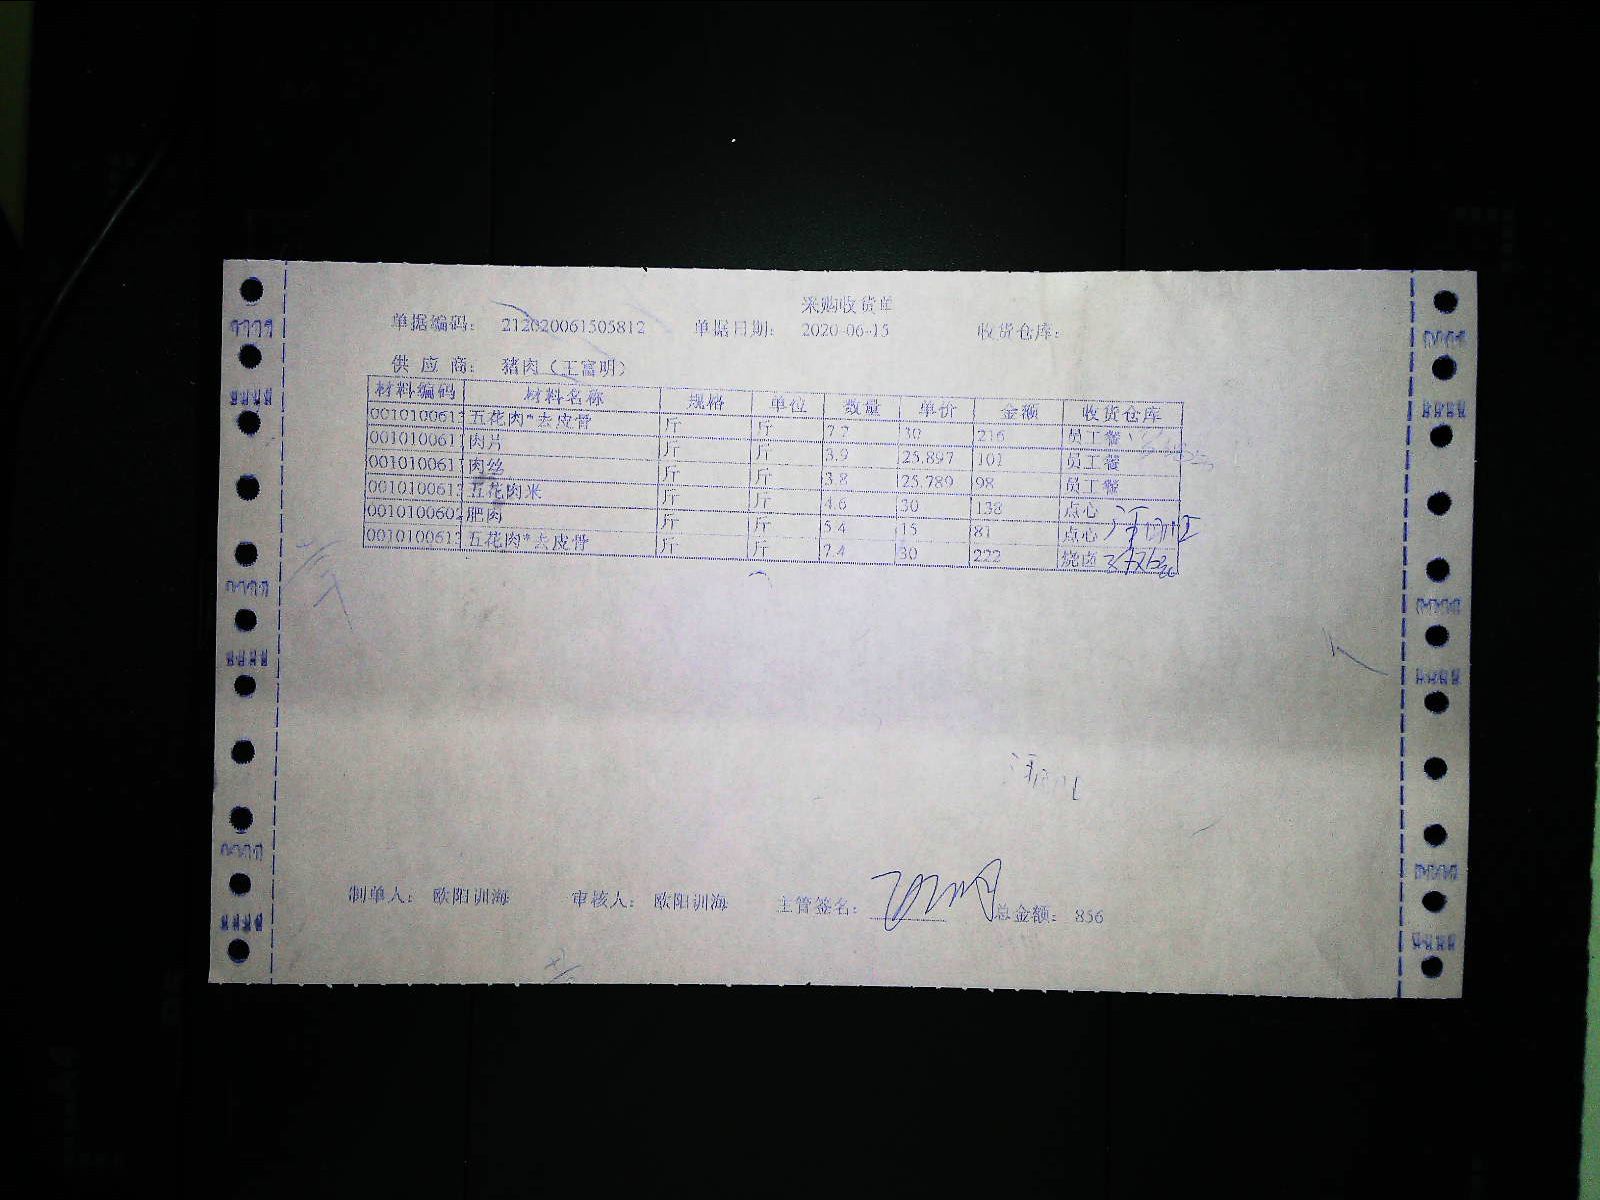 采购收货单
单据编码: 212020061505812 单据日期: 2020-06-15 收货仓库:
供 应 商: 猪肉（王富明）
材料编码 材料名称 规格 单位 数量 单价 金额 收货仓库
001010061 五花肉*去皮骨 斤 斤 7.2 30 216 员工餐
001010061 肉片 斤 斤 3.9 25.897 101 员工餐
001010061 肉丝 斤 斤 3.8 25.789 98 员工餐
001010061 五花肉米 斤 斤 4.6 30 138 点心
001010060 肥肉 斤 斤 5.4 15 81 点心
001010061 五花肉*去皮骨 斤 斤 7.4 30 222 烧卤
制单人: 欧阳训海 审核人: 欧阳训海 主管签名: 总金额: 856